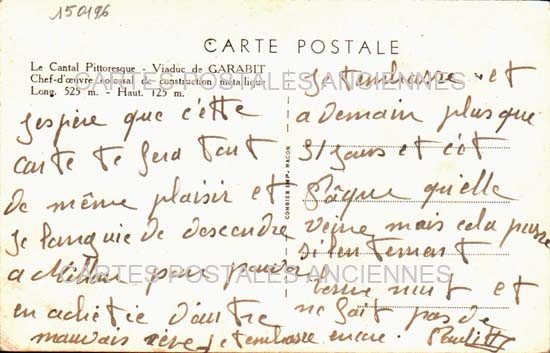 150196
CARTE POSTALE
Le Cantal Pittoresque - Viaduc de GARABIT
Chef-d'œuvre colossal de construction métallique
Long. 525 m. - Haut. 125 m.
J'espère que c'ètte
carte te sera tout
de même plaisir et
je languie de descendre
a Millau pour pouvoir
en achetée d'autre
mauvais rêve. je t'embrasse encore. Paulette
COMBIER IMP. MACON
je t'embrasse et
a demain plus que
31 jours et c'èt
Pâque qu'elle
veine mais cela passe
si lentement
bonne nuit et
ne fait pas de
CARTES POSTALES ANCIENNES
CARTES POSTALES ANCIENNES